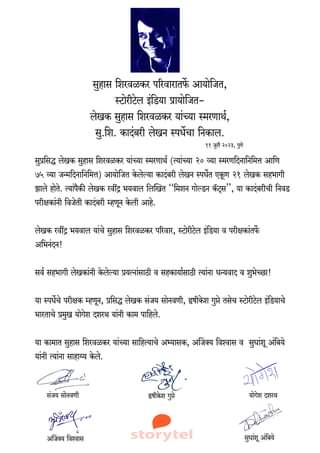 सुहास शिरवळकर परिवारातर्फे आयोजित,
स्टोरीटेल इंडिया प्रायोजित-
लेखक सुहास शिरवळकर यांच्या स्मरणार्थ,
सु.शि. कादंबरी लेखन स्पर्धेचा निकाल.
११ जुलै २०२३, पुणे
सुप्रसिद्ध लेखक सुहास शिरवळकर यांच्या स्मरणार्थ (त्यांच्या २० व्या स्मरणदिनानिमित्त आणि
७५ व्या जन्मदिनानिमित्त) आयोजित केलेल्या कादंबरी लेखन स्पर्धेत एकूण २१ लेखक सहभागी
झाले होते. त्यापैकी लेखक रवींद्र भयवाल लिखित “मिशन गोल्डन कॅट्स”, या कादंबरीची निवड
परीक्षकांनी विजेती कादंबरी म्हणून केली आहे.
लेखक रवींद्र भयवाल यांचे सुहास शिरवळकर परिवार, स्टोरीटेल इंडिया व परीक्षकांतर्फे
अभिनंदन!
सर्व सहभागी लेखकांनी केलेल्या प्रयत्नांसाठी व सहकार्यासाठी त्यांना धन्यवाद व शुभेच्छा!
या स्पर्धेचे परीक्षक म्हणून, प्रसिद्ध लेखक संजय सोनवणी, हृषीकेश गुप्ते तसेच स्टोरीटेल इंडियाचे
भारताचे प्रमुख योगेश दशरथ यांनी काम पाहिले.
या कामात सुहास शिरवळकर यांच्या साहित्याचे अभ्यासक, अजिंक्य विश्वास व सुधांशू अंबिये
यांनी त्यांना साहाय्य केले.
योगेश
संजय सोनवणी हृषीकेश गुप्ते योगेश दशरथ
अजिंक्य विश्वास storytel सुधांशू अंबिये